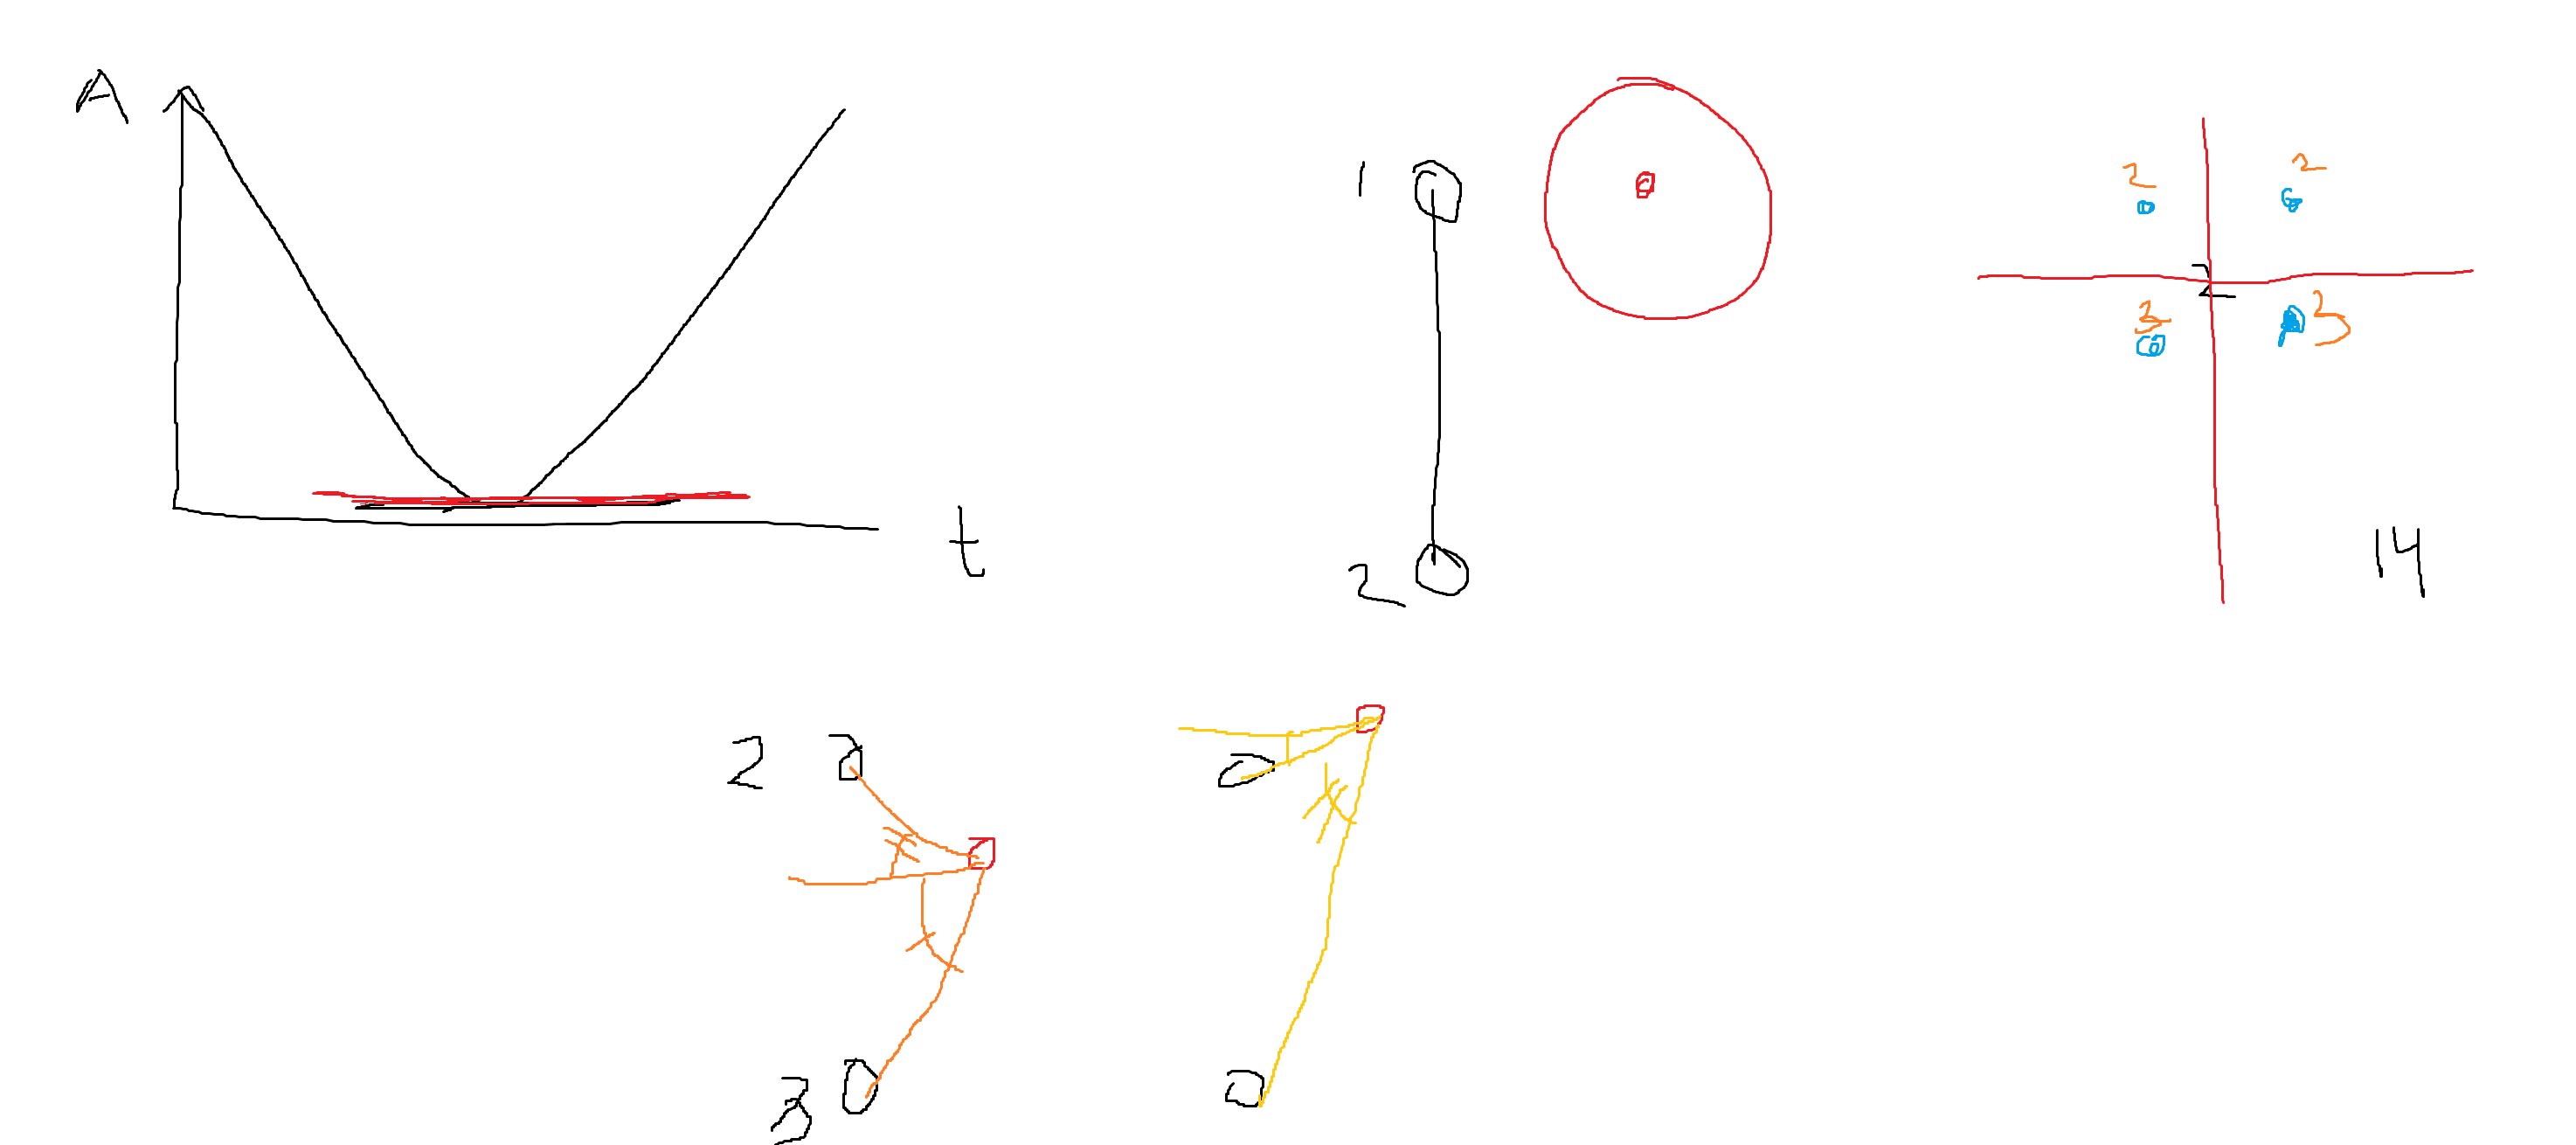 A
t
1
2
2 2
2
3 3
14
2
3